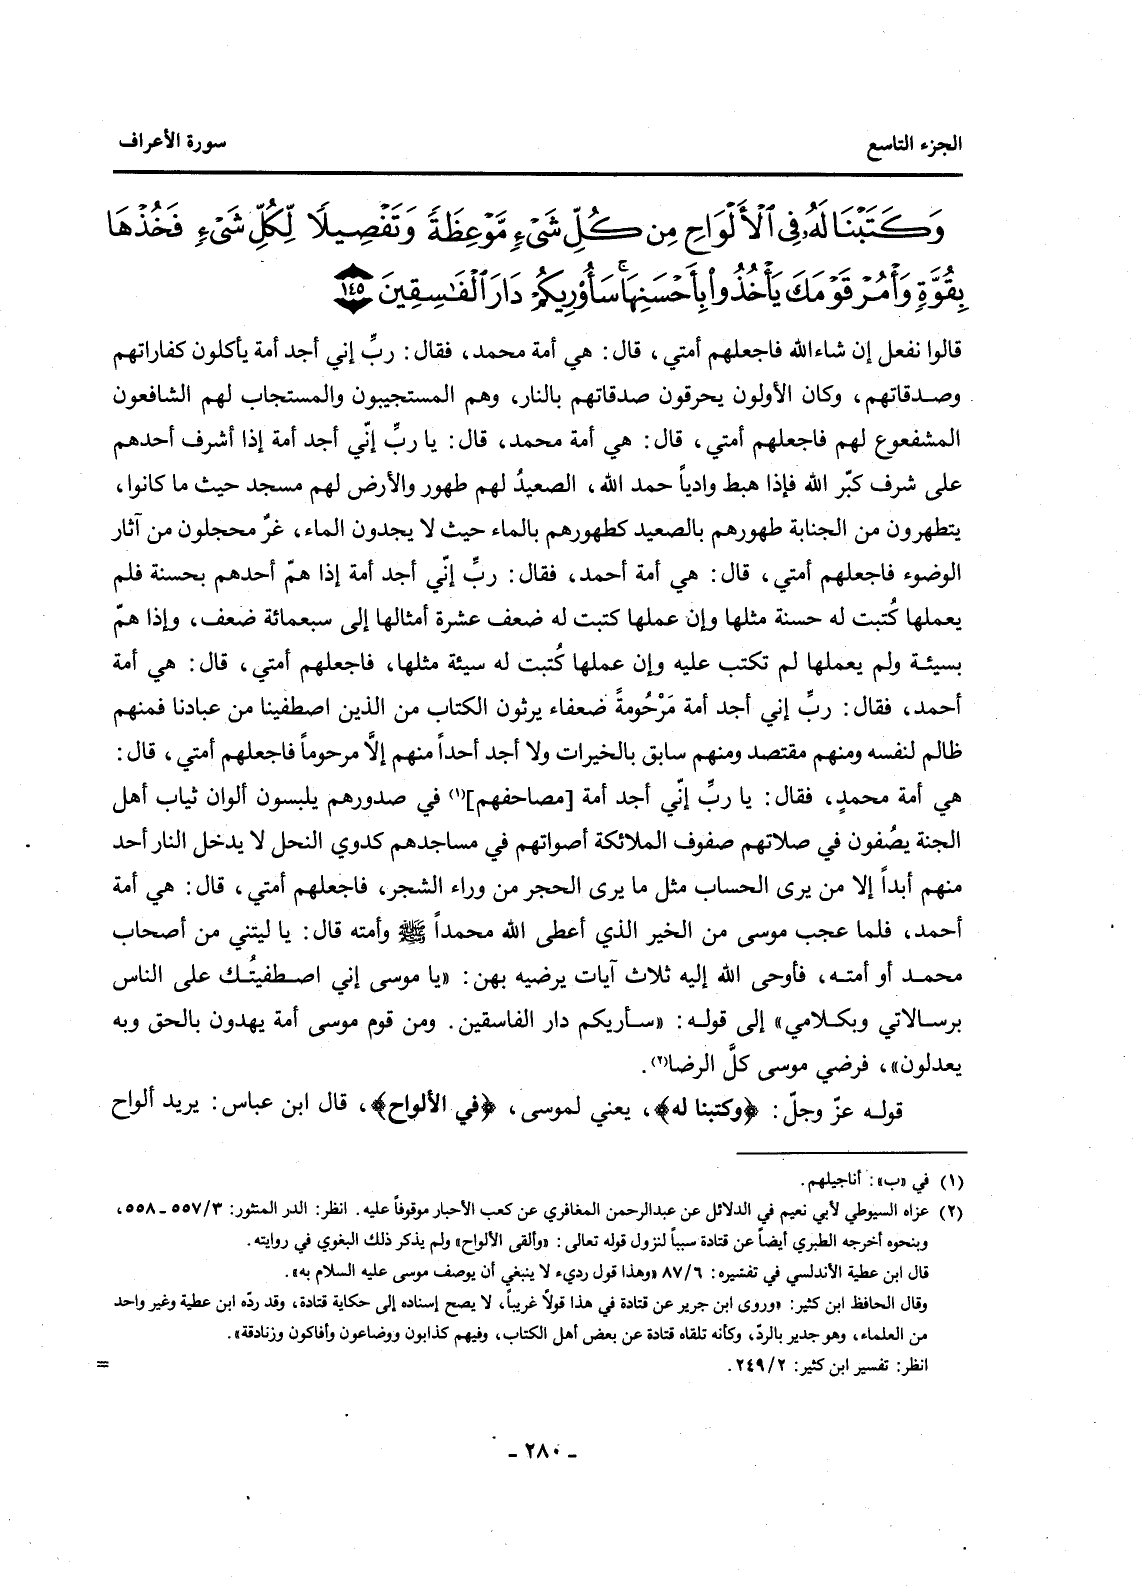 الجزء التاسع
سورة الأعراف
وَكَتَبْنَا لَهُۥ فِي ٱلْأَلْوَاحِ مِن كُلِّ شَىْءٍ مَّوْعِظَةً وَتَفْصِيلًا لِّكُلِّ شَىْءٍ فَخُذْهَا
بِقُوَّةٍ وَأْمُرْ قَوْمَكَ يَأْخُذُوا۟ بِأَحْسَنِهَا ۚ سَأُو۟رِيكُمْ دَارَ ٱلْفَـٰسِقِينَ ١٤٥
قالوا نفعل إن شاء الله فاجعلهم أمتي، قال: هي أمة محمد، فقال: ربِّ إني أجد أمة يأكلون كفاراتهم
وصدقاتهم، وكان الأولون يحرقون صدقاتهم بالنار، وهم المستجيبون والمستجاب لهم الشافعون
المشفعوع لهم فاجعلهم أمتي، قال: هي أمة محمد، قال: يا ربِّ إنّي أجد أمة إذا أشرف أحدهم
على شرف كبّر الله فإذا هبط وادياً حمد الله، الصعيدُ لهم طهور والأرض لهم مسجد حيث ما كانوا،
يتطهرون من الجنابة طهورهم بالصعيد كطهورهم بالماء حيث لا يجدون الماء، غرٌ محجلون من آثار
الوضوء فاجعلهم أمتي، قال: هي أمة أحمد، فقال: ربِّ إنّي أجد أمة إذا همّ أحدهم بحسنة فلم
يعملها كُتبت له حسنة مثلها وإن عملها كتبت له ضعف عشرة أمثالها إلى سبعمائة ضعف، وإذا همّ
بسيئة ولم يعملها لم تكتب عليه وإن عملها كُتبت له سيئة مثلها، فاجعلهم أمتي، قال: هي أمة
أحمد، فقال: ربِّ إني أجد أمة مَرْحُومةً ضعفاء يرثون الكتاب من الذين اصطفينا من عبادنا فمنهم
ظالم لنفسه ومنهم مقتصد ومنهم سابق بالخيرات ولا أجد أحداً منهم إلَّا مرحوماً فاجعلهم أمتي، قال:
هي أمة محمدٍ، فقال: يا ربِّ إنّي أجد أمة [مصاحفهم](١) في صدورهم يلبسون ألوان ثياب أهل
الجنة يصُفون في صلاتهم صفوف الملائكة أصواتهم في مساجدهم كدوي النحل لا يدخل النار أحد
منهم أبداً إلا من يرى الحساب مثل ما يرى الحجر من وراء الشجر، فاجعلهم أمتي، قال: هي أمة
أحمد، فلما عجب موسى من الخير الذي أعطى الله محمداً ﷺ وأمته قال: يا ليتني من أصحاب
محمد أو أمته، فأوحى الله إليه ثلاث آيات يرضيه بهن: «يا موسى إني اصطفيتُك على الناس
برسالاتي وبكلامي» إلى قوله: «سأريكم دار الفاسقين. ومن قوم موسى أمة يهدون بالحق وبه
يعدلون»، فرضي موسى كلَّ الرضا(٢).
قوله عزّ وجلّ: ﴿وكتبنا له﴾، يعني لموسى، ﴿في الألواح﴾، قال ابن عباس: يريد ألواح
(١) في «ب»: أناجيلهم.
(٢) عزاه السيوطي لأبي نعيم في الدلائل عن عبدالرحمن المغافري عن كعب الأحبار موقوفاً عليه. انظر: الدر المنثور: ٥٥٧/٣ ـ ٥٥٨،
وبنحوه أخرجه الطبري أيضاً عن قتادة سبباً لنزول قوله تعالى: «وألقى الألواح» ولم يذكر ذلك البغوي في روايته.
قال ابن عطية الأندلسي في تفسيره: ٨٧/٦ «وهذا قول رديء لا ينبغي أن يوصف موسى عليه السلام به».
وقال الحافظ ابن كثير: «وروى ابن جرير عن قتادة في هذا قولاً غريباً، لا يصح إسناده إلى حكاية قتادة، وقد ردّه ابن عطية وغير واحد
من العلماء، وهو جدير بالردّ، وكأنه تلقاه قتادة عن بعض أهل الكتاب، وفيهم كذابون ووضاعون وأفاكون وزنادقة».
انظر: تفسير ابن كثير: ٢٤٩/٢.
=
ـ ٢٨٠ ـ